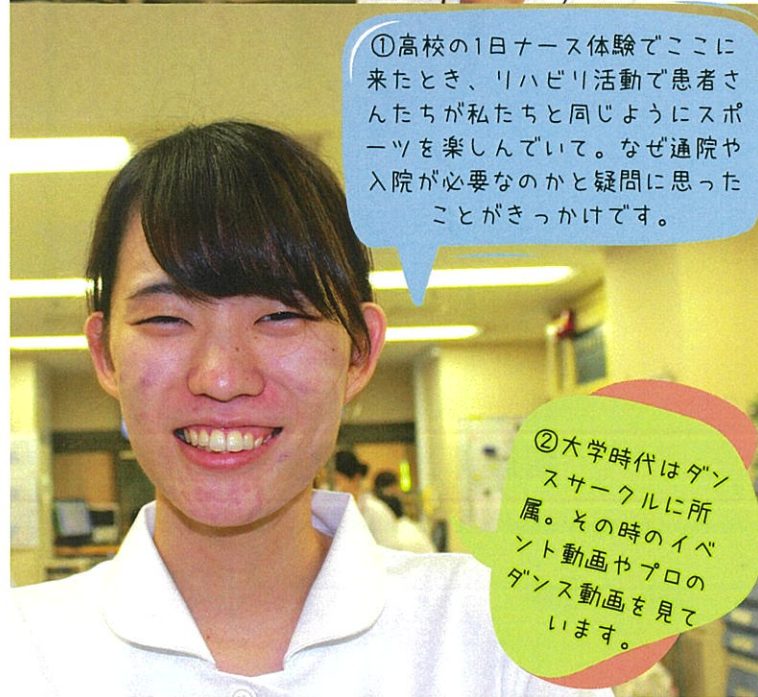 ①高校の1日ナース体験でここに
来たとき、リハビリ活動で患者さ
んたちが私たちと同じようにスポ
ーツを楽しんでいて。なぜ通院や
入院が必要なのかと疑問に思った
ことがきっかけです。
②大学時代はダン
スサークルに所
属。その時のイベ
ント動画やプロの
ダンス動画を見て
います。